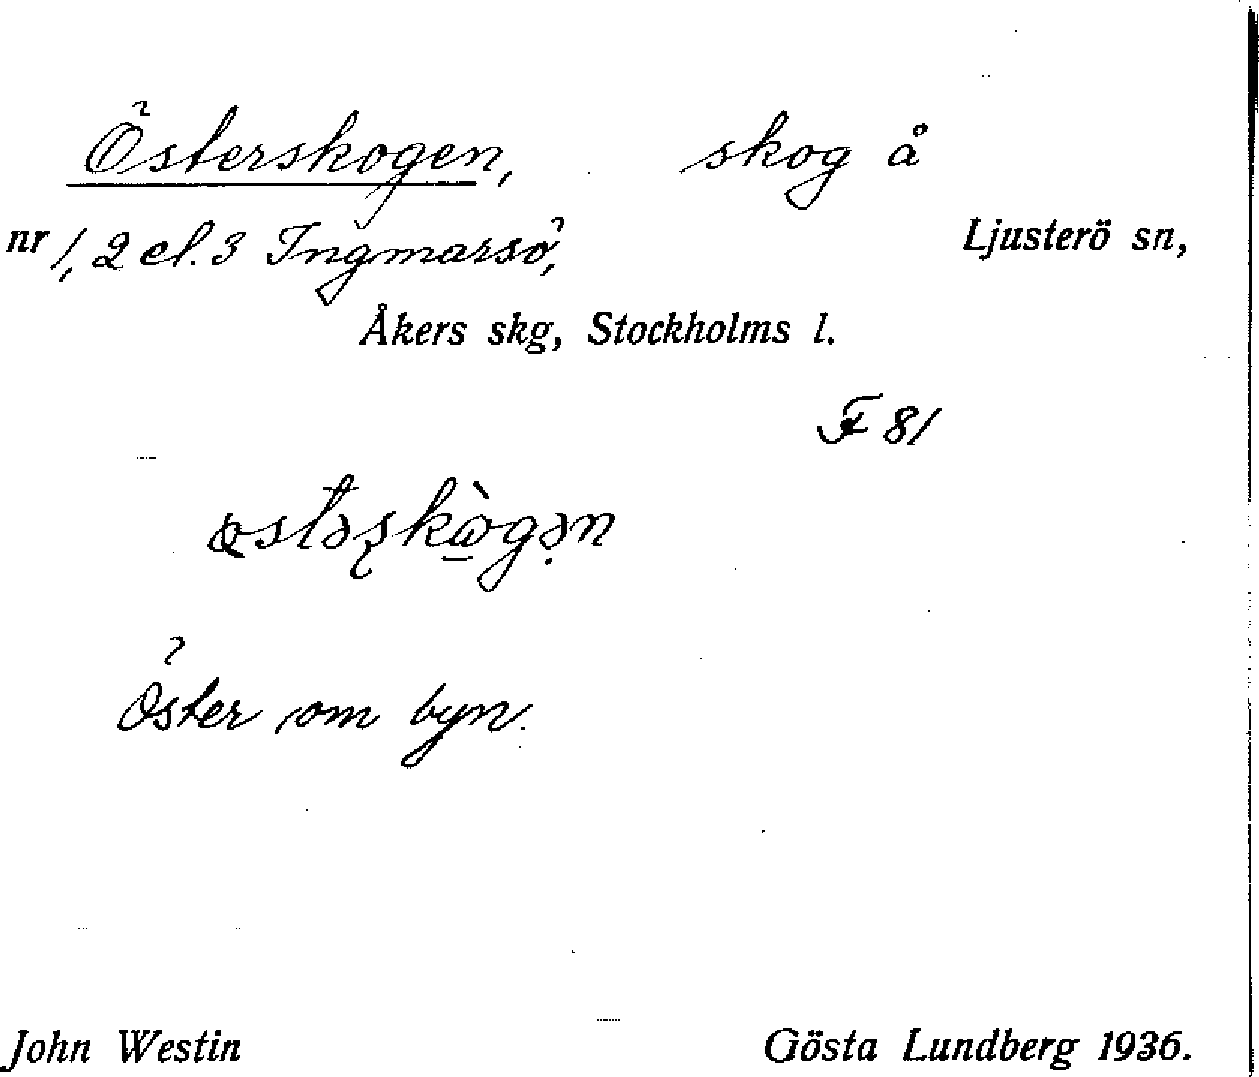 Österskogen, skog å
nr 1, 2 el. 3 Ingmarsö, Ljusterö sn,
Åkers skg, Stockholms l.
F 81
Öster om byn.
John Westin Gösta Lundberg 1936.